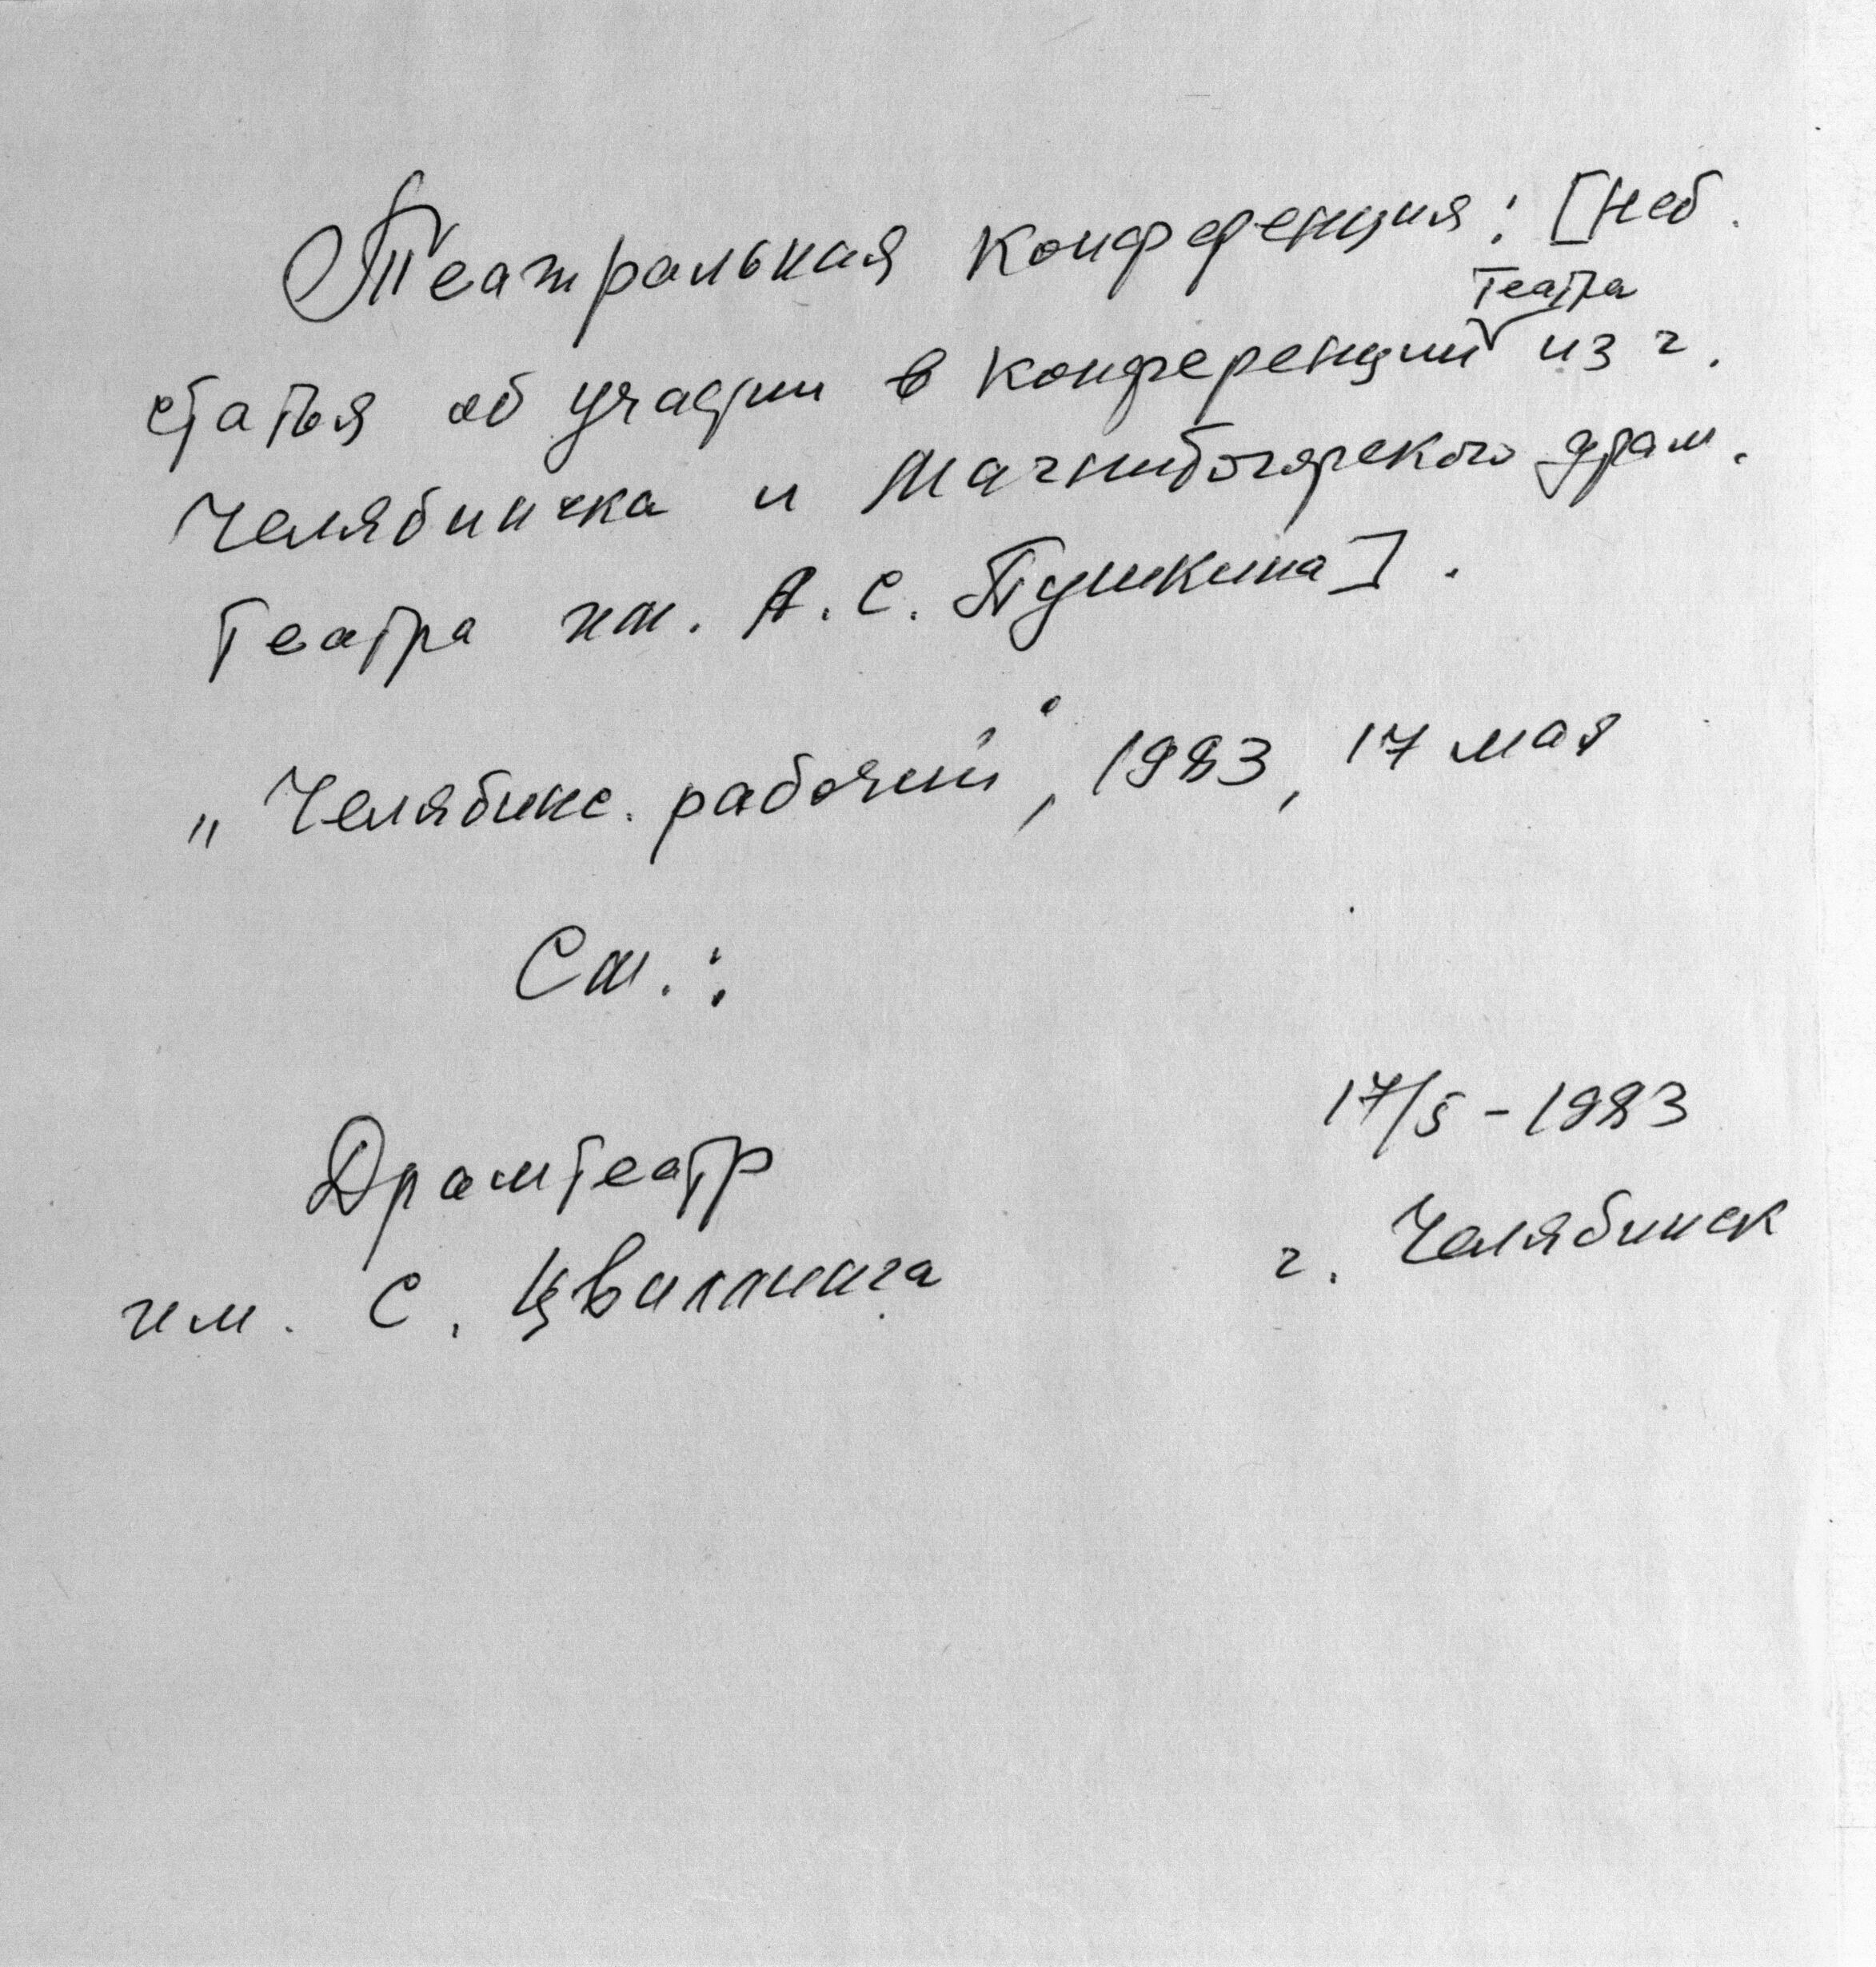 Театральная конференция: [Неб.
театра
статья об участии в конференции из г.
Челябинска и Магнитогорского драм.
театра им. А. С. Пушкина].
„Челябинс. рабочий", 1983, 17 мая
См.:
17/5 - 1983
Драмтеатр
г. Челябинск
им. С. Цвиллинга